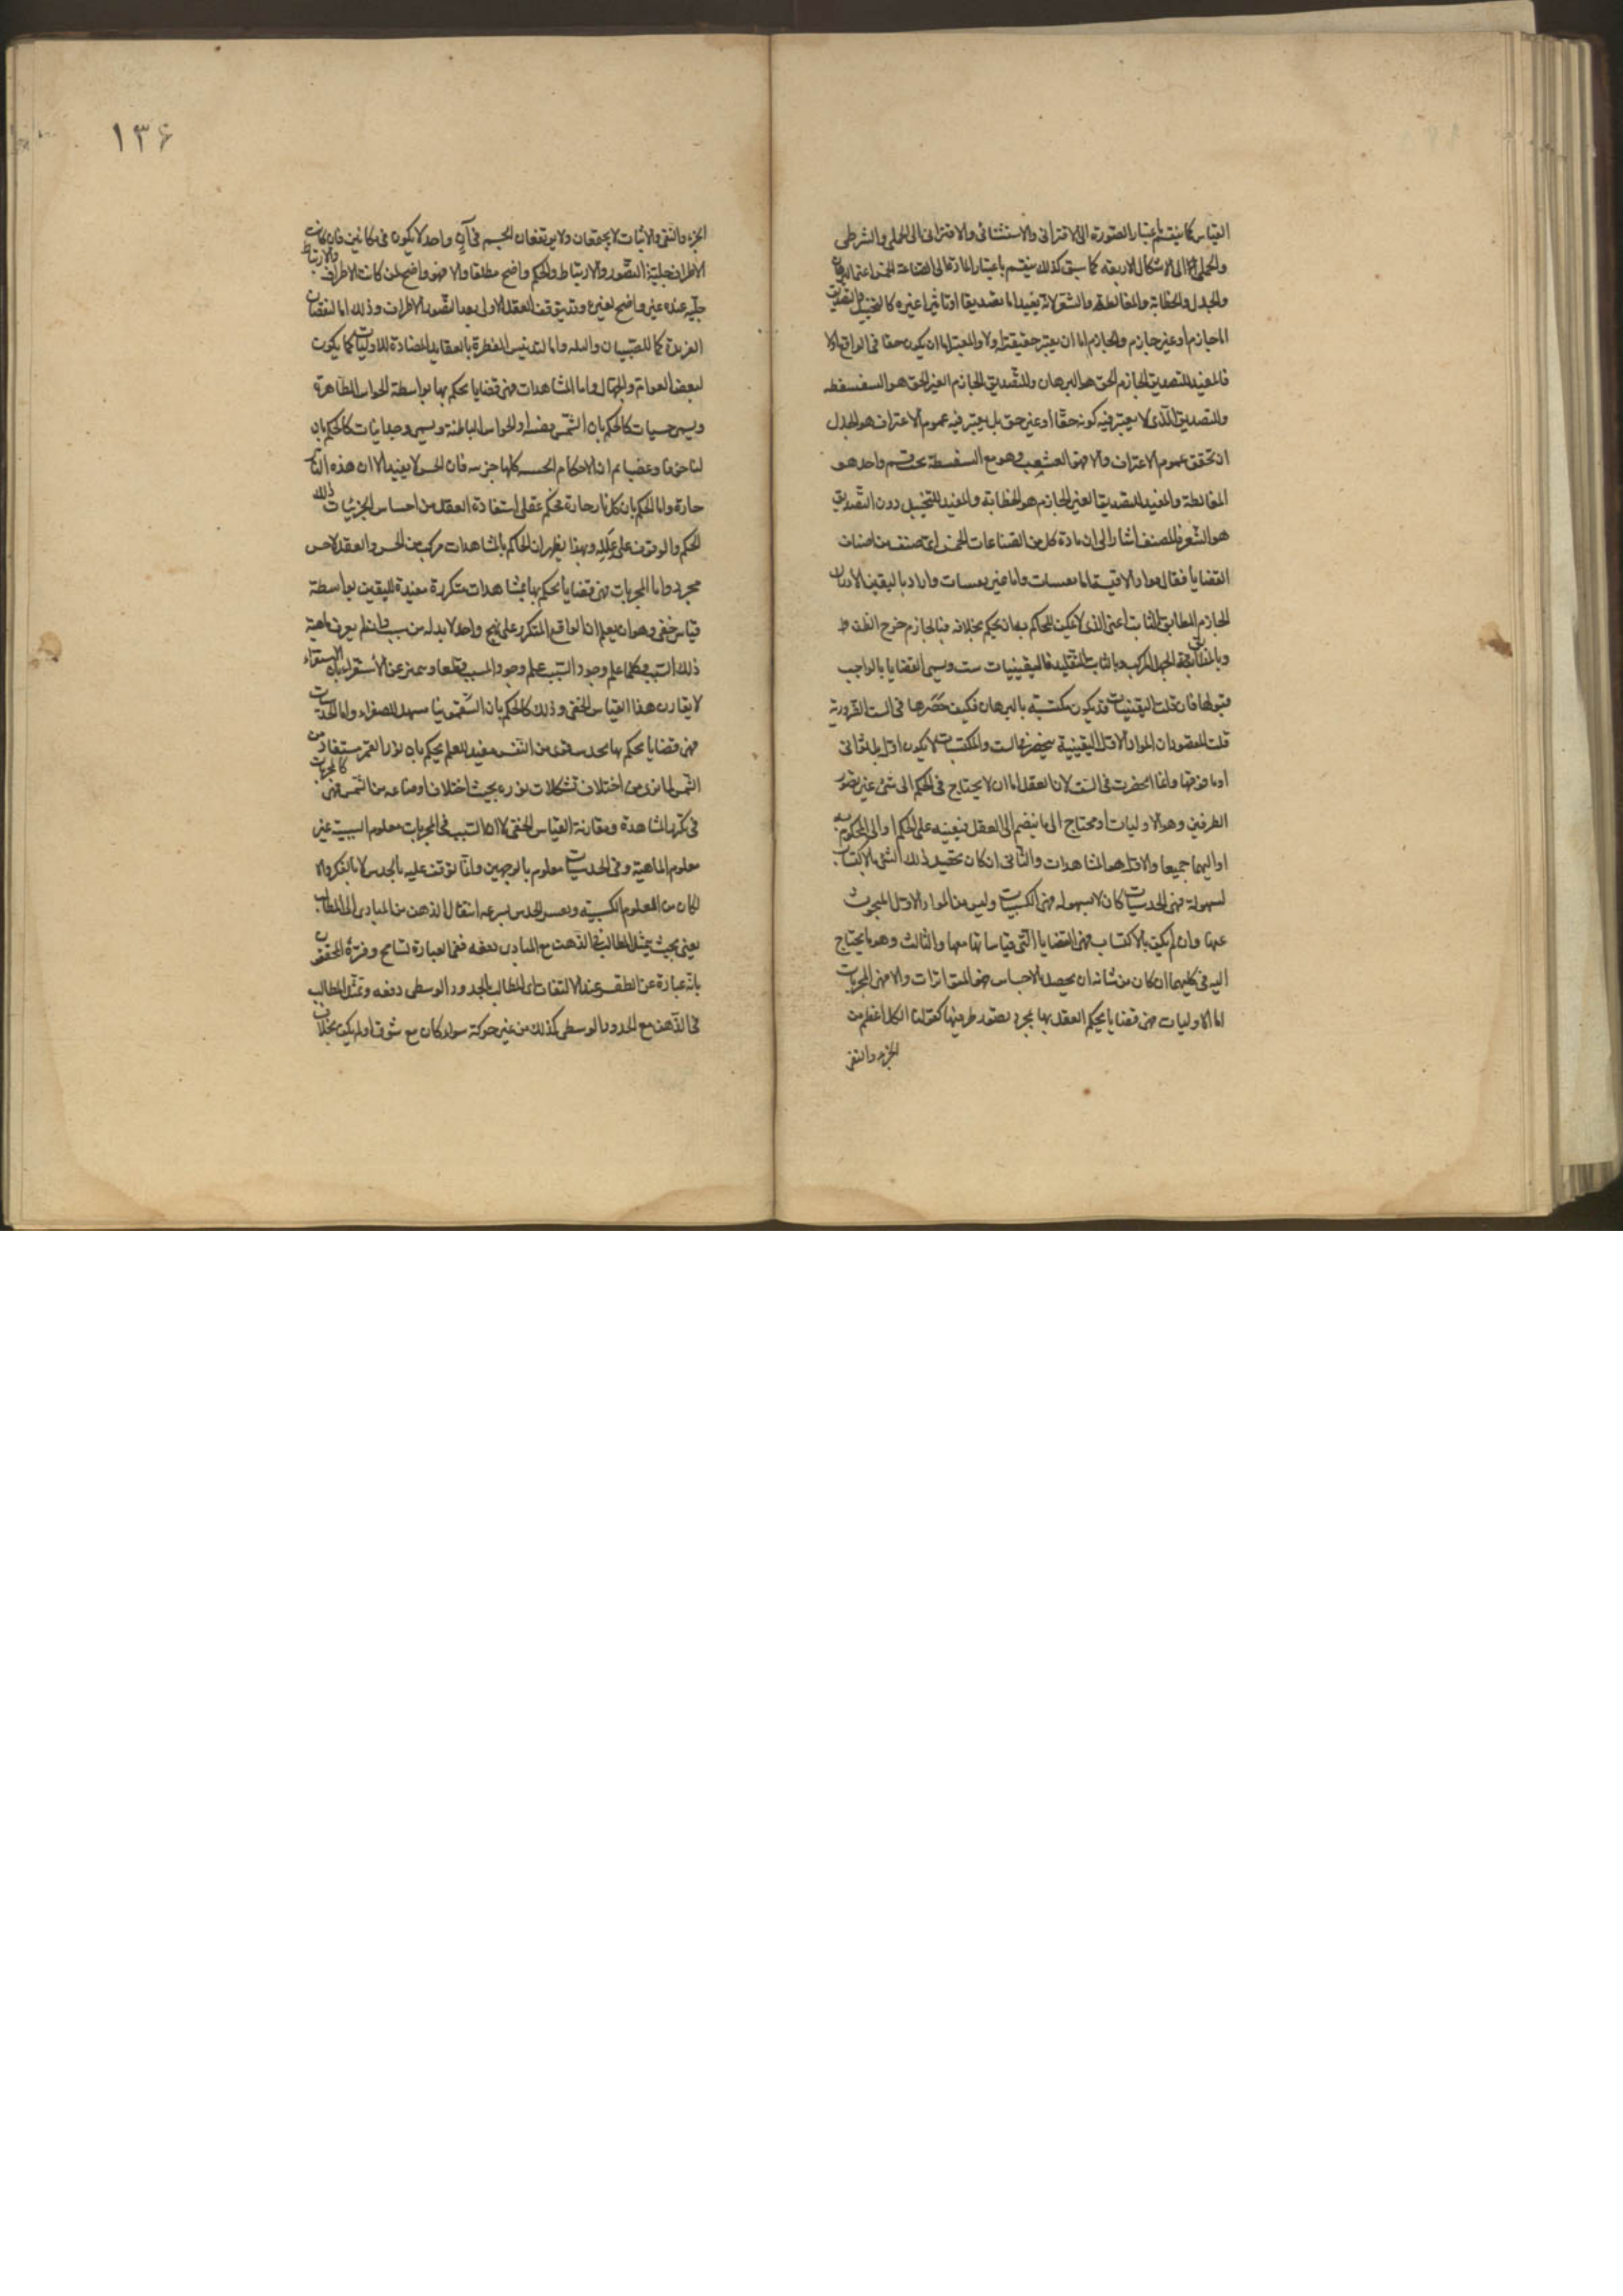 القياس كما ينقسم باعتبار الصورة الى الاقترانى والاستثنائى والاقترانى الى الحملى والشرطى
والحملى الى الاشكال الاربعة كما سبق كذلك ينقسم باعتبار المادة الى الصناعة الخمس اعنى البرهان
والجدل والخطابة والمغالطة والشعر لانه يفيد اما تصديقا او تاثيرا غيره كالتخييل والتصديق
اما جازم او غير جازم والجازم اما ان يعتبر حقيقته اولا والمعتبر اما ان يكون حقا فى الواقع اولا
فالمفيد للتصديق الجازم الحق هو البرهان وللتصديق الجازم الغير الحق هو السفسطه
وللتصديق الذى لا يعتبر فيه كونه حقا او غير حق بل يعتبر فيه عموم الاعتراف هو الجدل
ان تحقق عموم الاعتراف والا فهو الشغب وهو مع السفسطة تحت قسم واحد هو
المغالطة والمفيد للتصديق الغير الجازم هو الخطابة والمفيد للتخييل دون التصديق
هو الشعر فالمصنف اشار الى ان مادة كل من الصناعات الخمس اى صنف من اصناف
القضايا فقال مواد الاقيسة اما يقينيات واما غير يقينيات واراد باليقين الاعتقاد
الجازم المطابق الثابت اعنى الذى لا يمكن للحاكم به ان يحكم بخلافه فبالجازم خرج الظن
وبالمطابقة الجهل المركب وبالثابت التقليد فاليقينيات ست ويسمى القضايا بالواجب
قبولها فان قلت اليقينيات قد يكون مكتسبة بالبرهان فكيف حصرها فى الست الضرورية
قلت المقصود ان المواد الاول اليقينية منحصرة فى الست والمكتسبات لا يكون اول بل ثوانى
او ما فوقها وانما انحصرت فى الست لان العقل اما ان لا يحتاج فى الحكم الى شئ غير تصور
الطرفين وهو الاوليات او محتاج الى ما ينضم الى العقل فيعينه على الحكم او الى المحكوم به
او اليهما جميعا والاول هو المشاهدات والثانى ان كان تحصيل ذلك الشئ بالاكتساب
لسهولة فهى الحدسيات كان لا بسهولة فهى الكسبيات وليس من المواد الاول المبحوث
عنها وان لم يكن بالاكتساب فهى القضايا التى قياساتها معها والثالث وهو ما يحتاج
اليه فى كليهما ان كان من شانه ان يحصل بالاحساس فهو المتواترات والا فهى المجربات
اما الاوليات فهى قضايا يحكم العقل بها بمجرد تصور طرفيها كقولنا الكل اعظم من
الجزء والنفى
١٣۶
الجزء والنفى والاثبات لا يجتمعان ولا يرتفعان الجسم فى آن واحد لا يكون فى مكانين فان كانت
الاطراف جلية التصور والارتباط والحكم واضح مطلقا والا فهو واضح لمن كانت الاطراف والارتباط
جلية عنده غير واضح لغيره وقد يتوقف العقل الاولى بعد التصور الاطراف وذلك اما لنقصان
الغريزة كما للصبيان والبله واما لتدنيس الفطرة بالعقايد المضادة للاوليات كما يكون
لبعض العوام والجهال واما المشاهدات فهى قضايا يحكم بها بواسطة الحواس الظاهرة
ويسمى حسيات كالحكم بان الشمس مضيئة او الحواس الباطنة ويسمى وجدانيات كالحكم بان
لنا خوفا وغضبا ثم ان الاحكام الحسيه كلها جزئيه فان الحس لا يفيد الا ان هذه النار
حارة واما الحكم بان كل نار حارة فحكم عقلى استفادة العقل من احساس الجزئيات ذلك
الحكم والوقوف على علله وبهذا يظهر ان الحاكم بالمشاهدات مركب من الحس والعقل لا حس
مجرد واما المجربات فهى قضايا يحكم بها بمشاهدات متكررة مفيدة لليقين بواسطة
قياس خفى وهو ان يعلم ان الواقع المتكرر على نهج واحد لا بد له من سبب وان لم يعرف ماهية
ذلك السبب وكلما علم وجود السبب علم وجود المسبب قطعا ويميز عن الاستقراء بان الاستقراء
لا يقارن هذا القياس الخفى وذلك كالحكم بان السقمونيا مسهل للصفراء واما الحدسيات
فهى قضايا يحكم بها بحدس قوى من النفس مفيد للعلم يحكم بان نور القمر مستفاد من
الشمس لما نرى من اختلاف تشكلات نوره بحيث اختلاف اوضاعه من الشمس فهى كالمجربات
فى تكرر المشاهدة ومقارنة القياس الخفى الا ان السبب فى المجربات معلوم السببية غير
معلوم الماهية وفى الحدسيات معلوم بالوجهين وانما توقف عليه بالحدس لا بالفكر والا
لكان من العلوم الكسبيه ونفسر الحدس بسرعة انتقال الذهن من المبادى الى المطالب
يعنى بحيث يتمثل المطالب فى الذهن مع المبادى دفعه ففى العبارة تسامح وفسره المحقق
بانه عبارة عن الظفر عند الالتفات الى المطالب بالحدود الوسطى دفعه وتمثل المطالب
فى الذهن مع الحدود الوسطى كذلك من غير حركة سواء كان مع شوق او لم يكن بخلاف